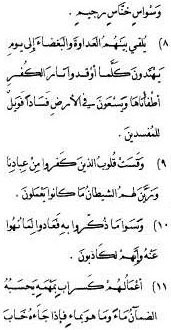 وسواس خنّاس رجيم .
(٨) يلقي بينهم العداوة والبغضاء إلى يوم
يهتدون كلّما أوقدوا نار الكفر
أطفأناها ويسعون في الأرض فسادًا فويل
للمفسدين .
(٩) وقست قلوب الذين كفروا من عبادنا
وزيّن لهم الشيطان ما كانوا يعملون .
(١٠) ونسوا ما ذكّروا به فعادوا لما نهوا
عنه وإنّهم لكاذبون .
(١١) أعمالهم كسراب بمهمه يحسبه
الضمآن ماءً وما هو بماءٍ فإذا جاءه خاب